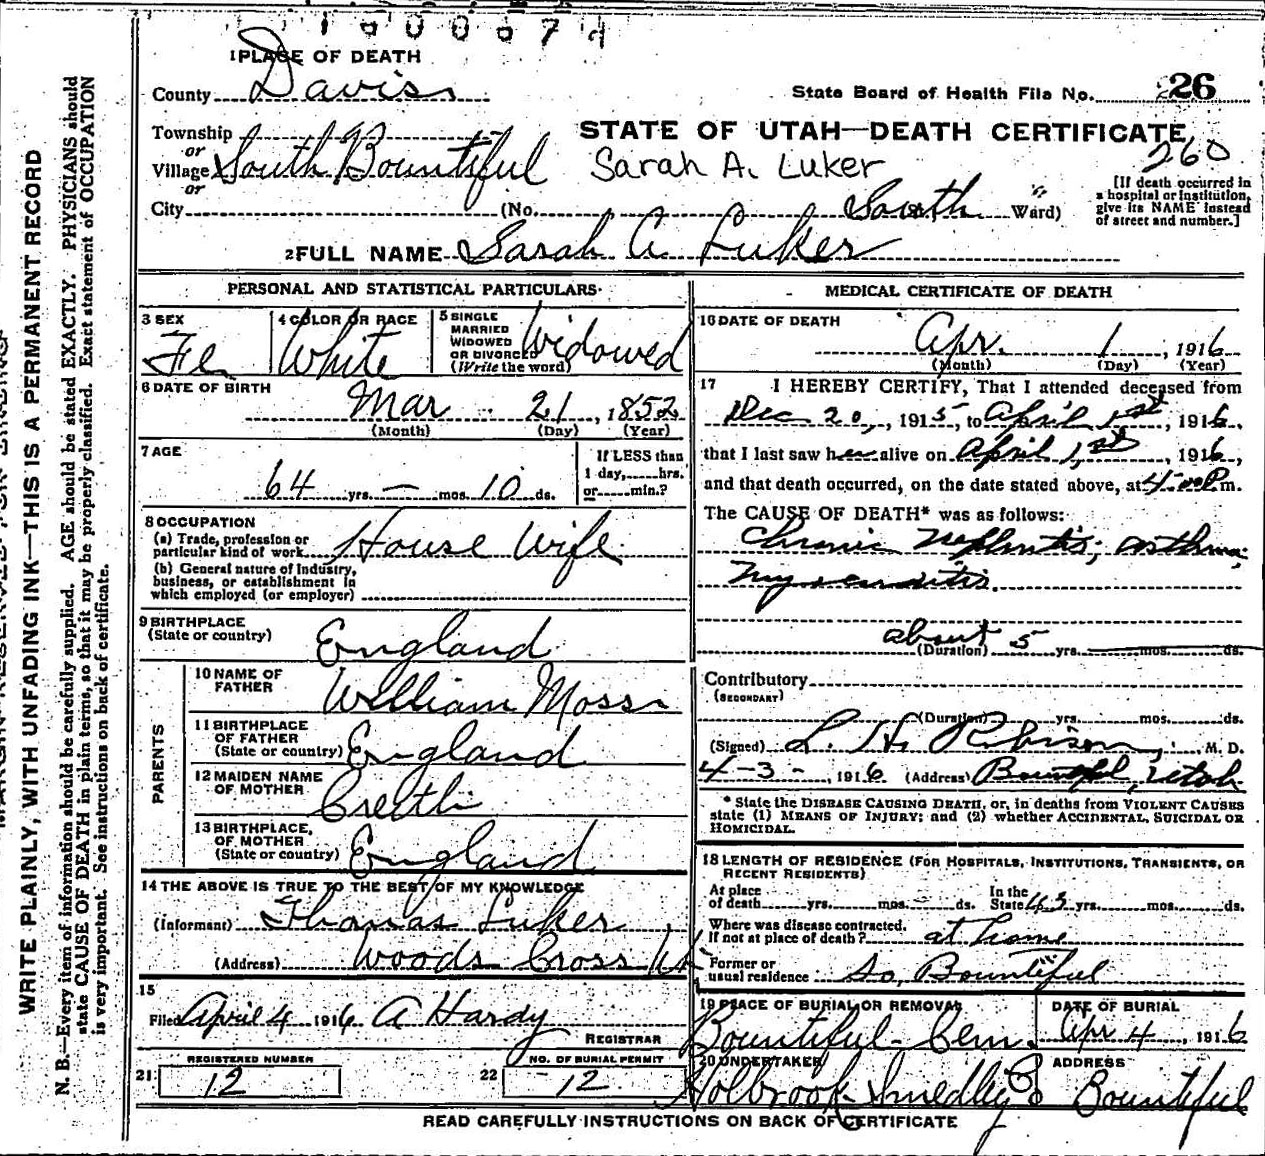 1 PLACE OF DEATH
County Davis
State Board of Health File No. 26
Township
or
Village South Bountiful
or
City (No. South Ward)
STATE OF UTAH—DEATH CERTIFICATE
260
Sarah A. Luker
[If death occurred in
a hospital or institution,
give its NAME instead
of street and number.]
2 FULL NAME Sarah A Luker
PERSONAL AND STATISTICAL PARTICULARS
3 SEX Fe
4 COLOR OR RACE White
5 SINGLE
MARRIED
WIDOWED
OR DIVORCED
(Write the word)
Widowed
6 DATE OF BIRTH
Mar 21, 1852
(Month) (Day) (Year)
7 AGE
64 yrs. — mos. 10 ds.
If LESS than
1 day, hrs.
or min.?
8 OCCUPATION
(a) Trade, profession or
particular kind of work House Wife
(b) General nature of Industry,
business, or establishment in
which employed (or employer)
9 BIRTHPLACE
(State or country) England
PARENTS
10 NAME OF
FATHER William Moss
11 BIRTHPLACE
OF FATHER
(State or country) England
12 MAIDEN NAME
OF MOTHER
13 BIRTHPLACE,
OF MOTHER
(State or country) England
14 THE ABOVE IS TRUE TO THE BEST OF MY KNOWLEDGE
(Informant) Thomas Luker
(Address) Woods Cross Ut
15
Filed April 4 1916 A Hardy
REGISTRAR
REGISTERED NUMBER
21 12
NO. OF BURIAL PERMIT
22 12
MEDICAL CERTIFICATE OF DEATH
16 DATE OF DEATH
Apr. 1, 1916
(Month) (Day) (Year)
17 I HEREBY CERTIFY, That I attended deceased from
Dec 20, 1915, to April 1st, 1916,
that I last saw her alive on April 1st, 1916,
and that death occurred, on the date stated above, at 4:00 P.m.
The CAUSE OF DEATH* was as follows:
Chronic Nephritis; asthma;
Myocarditis.
about
(Duration) 5 yrs. mos. ds.
Contributory
(SECONDARY)
(Duration) yrs. mos. ds.
(Signed) L. H. Robison, M. D.
4-3-, 1916 (Address) Bountiful, Utah
* State the DISEASE CAUSING DEATH, or, in deaths from VIOLENT CAUSES
state (1) MEANS OF INJURY; and (2) whether ACCIDENTAL, SUICIDAL OR
HOMICIDAL.
18 LENGTH OF RESIDENCE (FOR HOSPITALS, INSTITUTIONS, TRANSIENTS, OR
RECENT RESIDENTS)
At place
of death yrs. mos. ds.
In the
State 43 yrs. mos. ds.
Where was disease contracted.
If not at place of death? at home
Former or
usual residence So, Bountiful
19 PLACE OF BURIAL OR REMOVAL
Bountiful Cem.
DATE OF BURIAL
Apr 4, 1916
20 UNDERTAKER
Holbrook Smedley Co
ADDRESS
Bountiful
READ CAREFULLY INSTRUCTIONS ON BACK OF CERTIFICATE
WRITE PLAINLY, WITH UNFADING INK—THIS IS A PERMANENT RECORD
N. B.—Every item of information should be carefully supplied. AGE should be stated EXACTLY. PHYSICIANS should
state CAUSE OF DEATH in plain terms, so that it may be properly classified. Exact statement of OCCUPATION
is very important. See instructions on back of certificate.